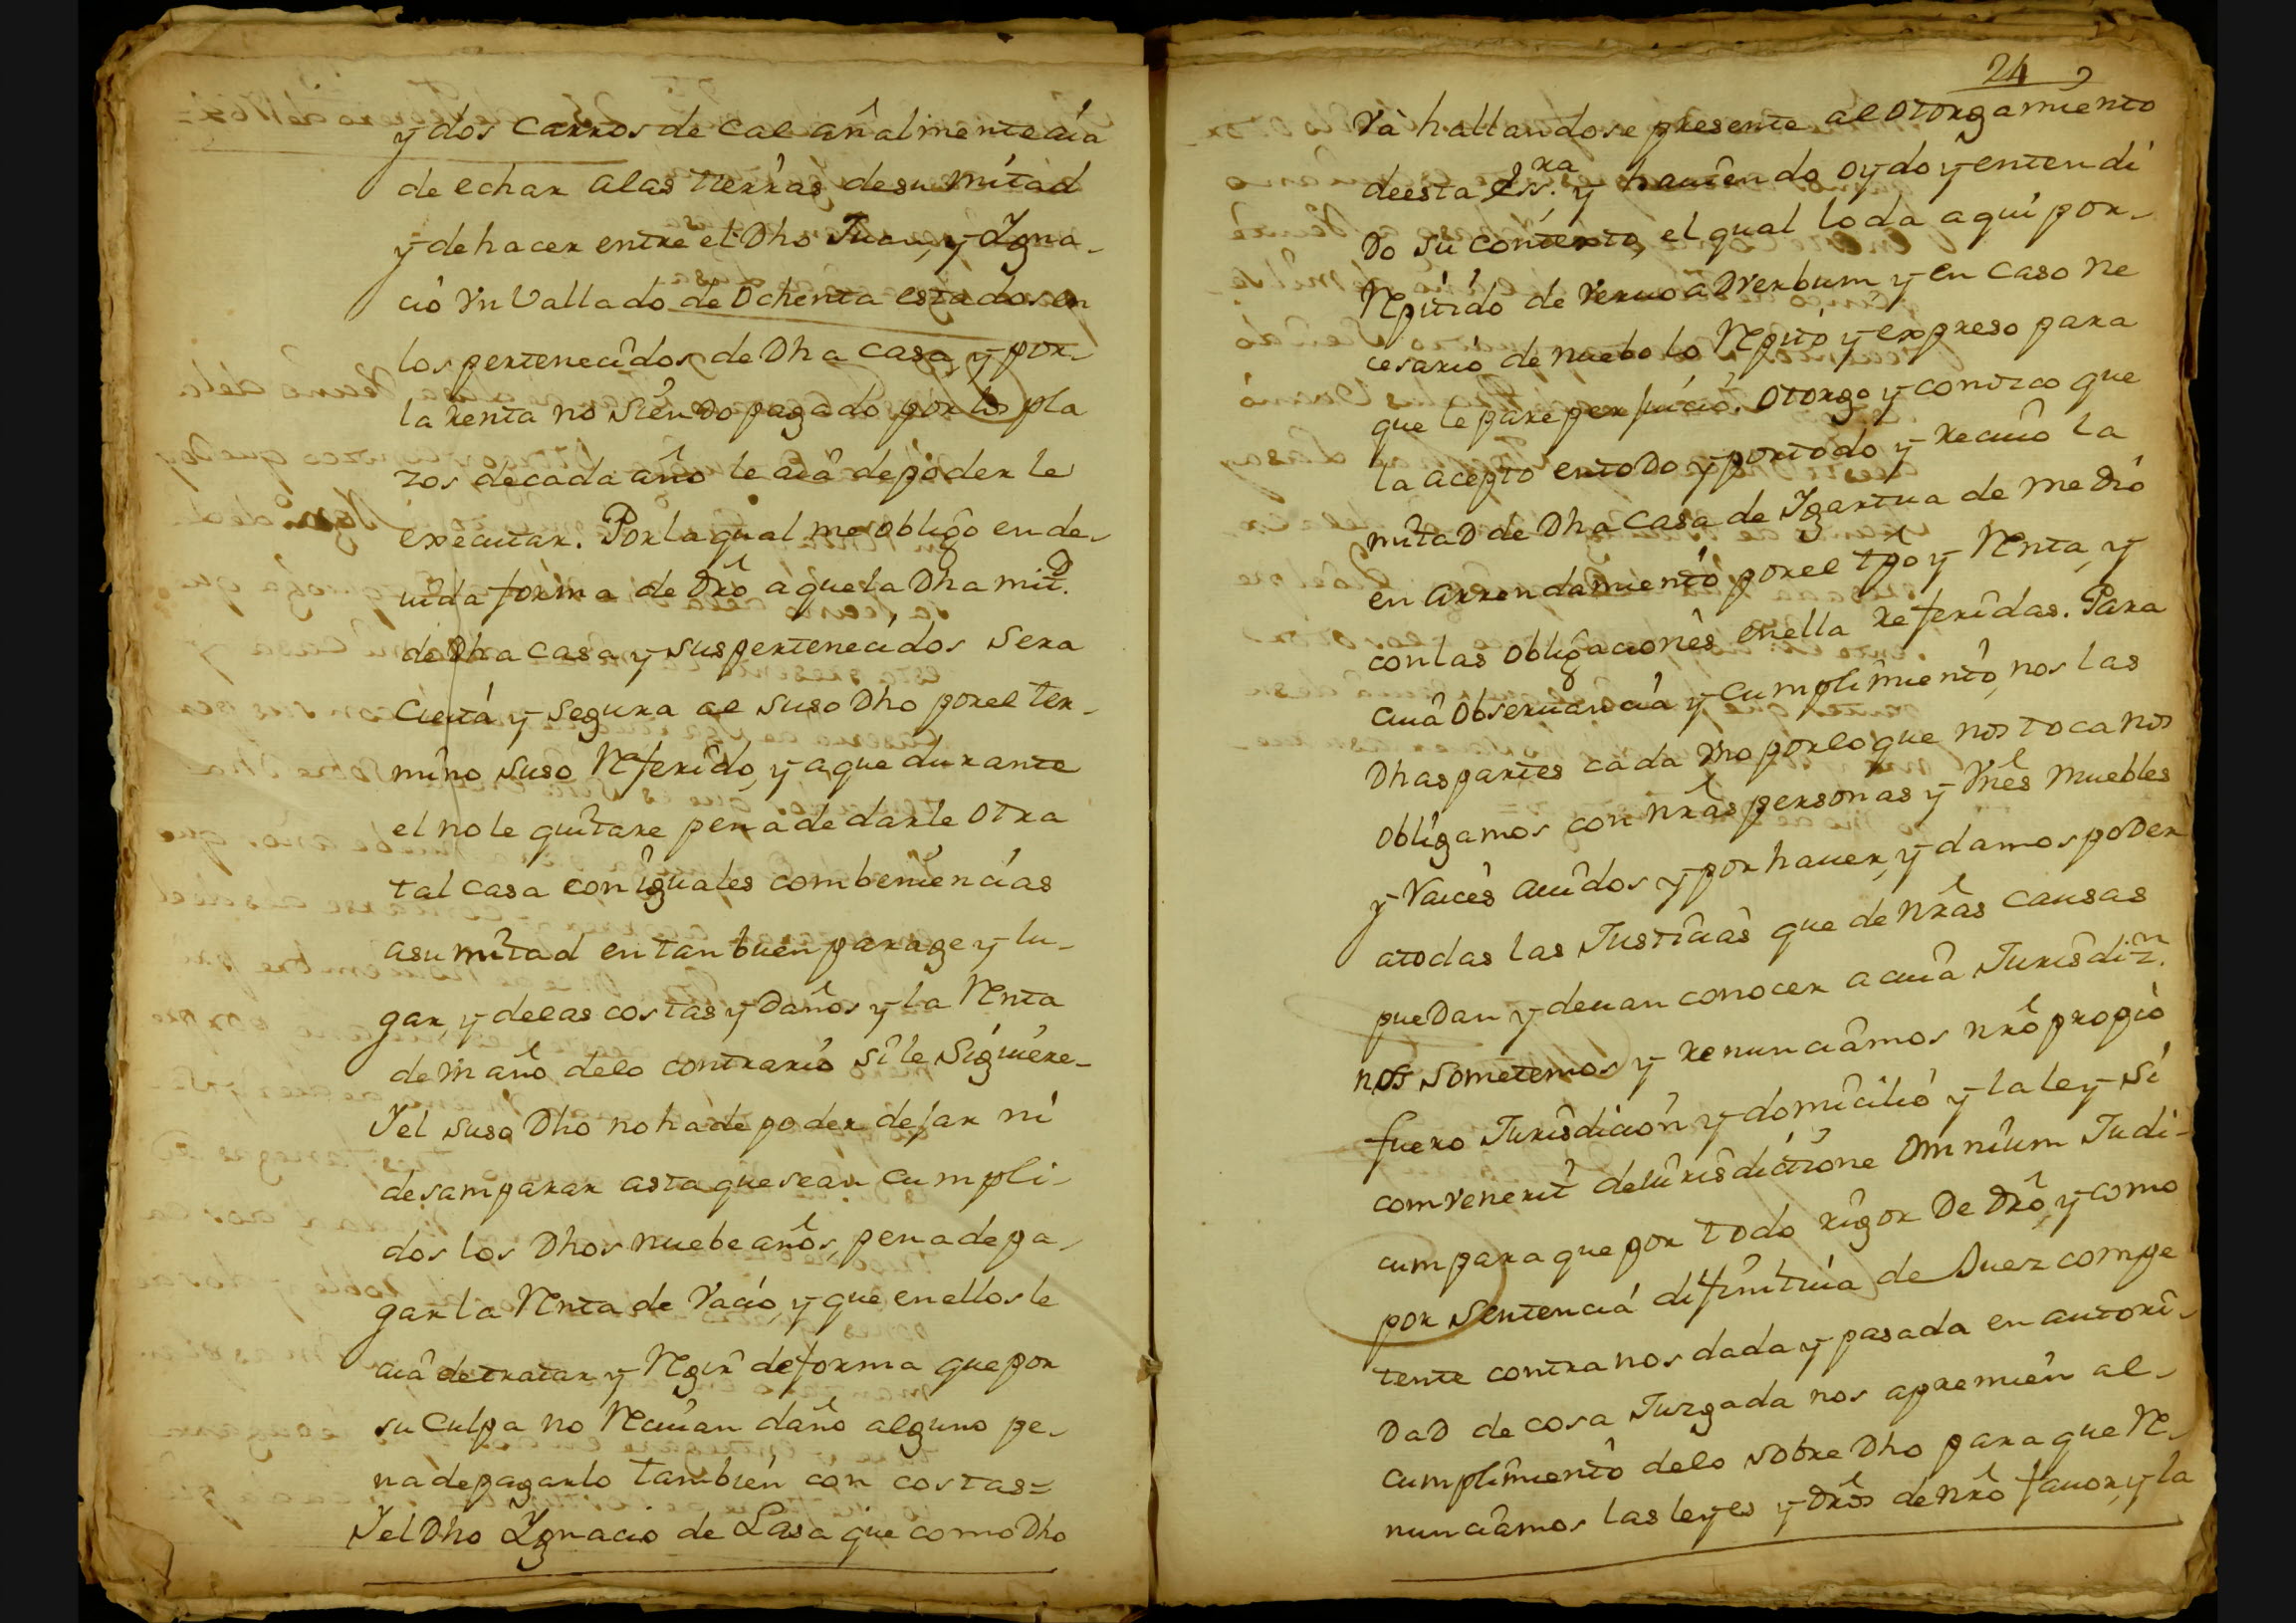 y dos carros de cal añalmente aia
de echar alas tierras de su mitad
y de hacer entre el Dho Juan, y Igna-
cio Vn Vallado de Ochenta estados en
los pertenecidos de Dha casa, y por-
la renta no siendo pagado por los pla
zos de cada año le aia de poder le
executar. Por la qual me obligo en de-
uida forma de Dro a que la Dha mit.d
de Dha casa y sus pertenecidos sera
cierta y segura al suso Dho por el ter-
mino suso Referido, y a que durante
el no le quitare pena de darle otra
tal casa con iguales combeniencias
a su mitad en tan buen parage y lu-
gar, y de las costas y Daños y la Renta
de Vn año de lo contrario si le siguiere-
Y el suso Dho no ha de poder dejar ni
desamparar asta que sean cumpli-
dos los Dhos nuebe años, pena de pa-
gar la Renta de Vacio, y que en ellos le
aia de tratar y Regir de forma que por
su culpa no Reciuan daño alguno pe-
na de pagarlo tambien con costas=
Y el Dho Ignacio de Lasa que como Dho
24
Va hallandose presente al otorgamiento
de esta Ess.ra y hauiendo oydo y entendi
do su contexto, el qual lo da aqui por-
Repitido de Veruo ad Verbum y en caso ne
cesario de nuebo lo Repito y expreso para
que le pare perjuicio. Otorgo y conozco que
la acepto en todo y por todo y reciuo la
mitad de Dha casa de Igartua de medio
en arrendamiento por el tpo y Renta, y
con las obligaciones en ella referidas. Para
cuia obseruancia y cumplimiento, nos las
Dhas partes cada Vno por lo que nos toca nos
obligamos con nras personas y Vnes muebles
y Raices auidos y por hauer, y damos poder
a todas las Justicias que de nras causas
puedan y deuan conocer a cuia Jurisdiz.n
nos sometemos y renunciamos nro propio
fuero Jurisdicion y domicilio y la ley si
comvenerit de iurisdictione omnium Judi-
cum para que por todo rigor de Dro, y como
por sentencia difinitiua de Juez compe
tente contra nos dada y pasada en autori-
dad de cosa Juzgada nos apremien al-
cumplimiento de lo sobre Dho para que Re-
nunciamos las leyes y Dros de nro fauor, y la